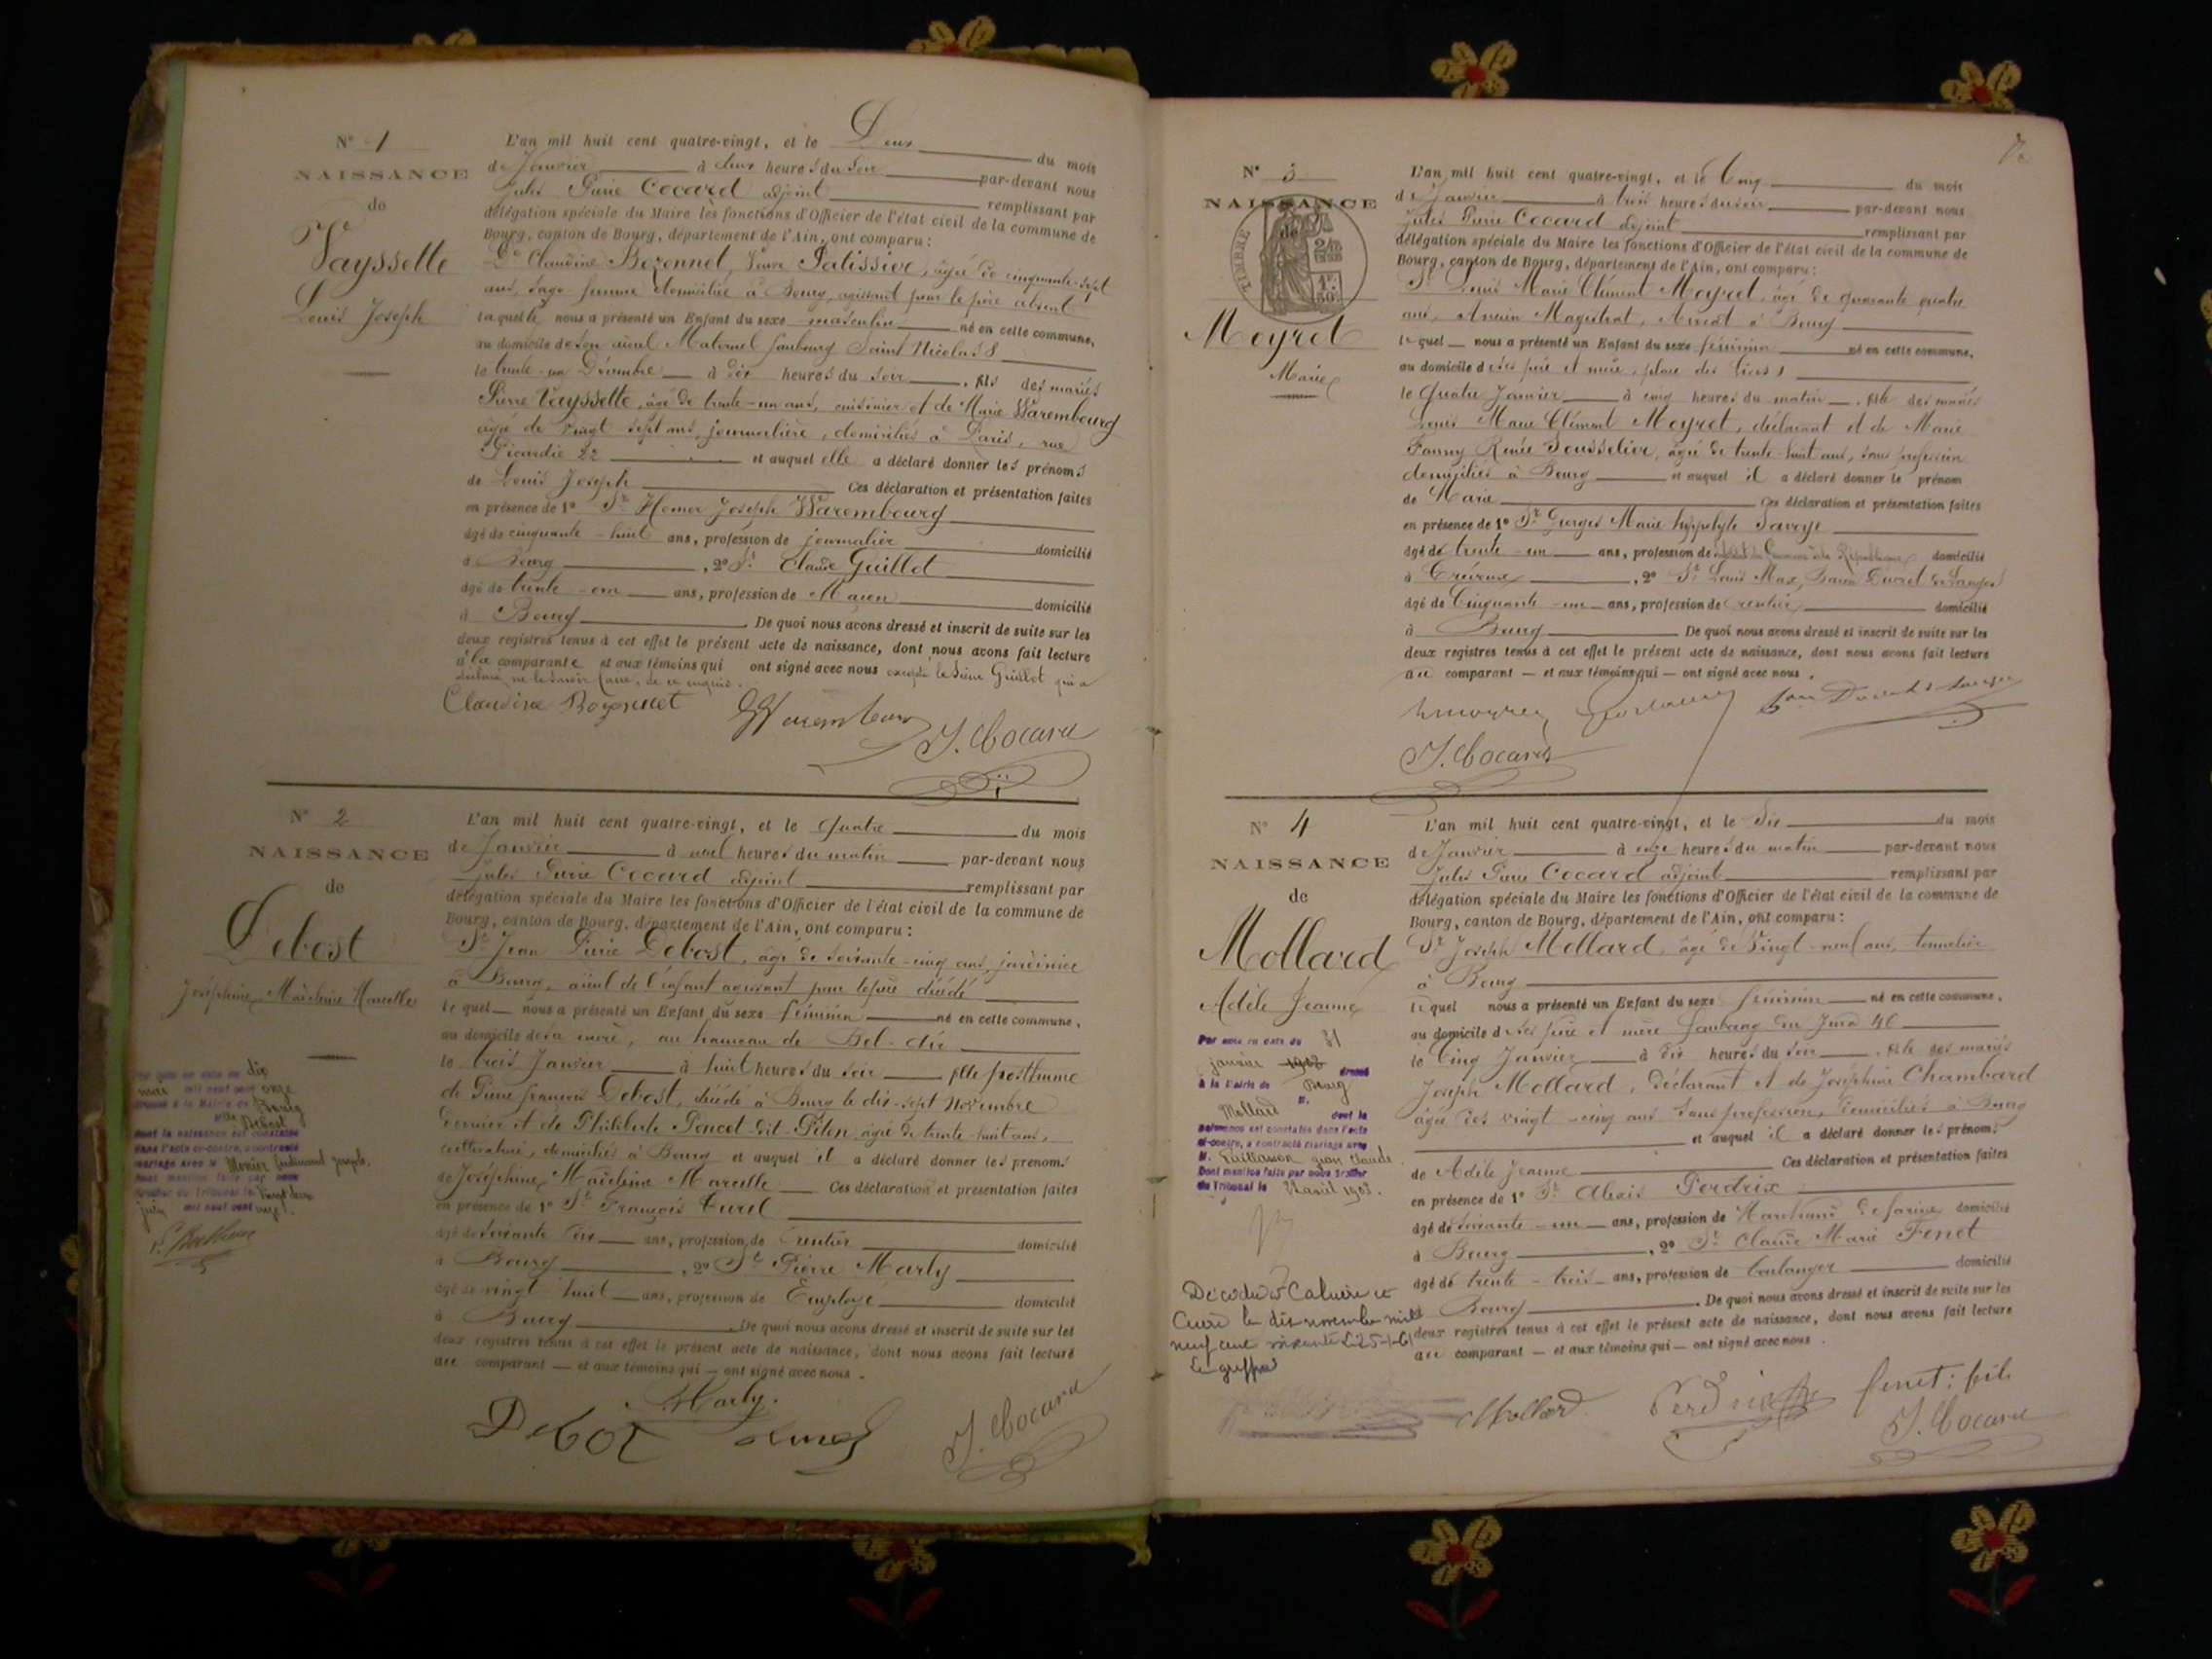 N° 1
NAISSANCE
de
Vayssette
Louis Joseph
L'an mil huit cent quatre-vingt, et le Deux du mois
de Janvier à deux heures du soir par-devant nous
Jules Pierre Cocard adjoint remplissant par
délégation spéciale du Maire les fonctions d'Officier de l'état civil de la commune de
Bourg, canton de Bourg, département de l'Ain, ont comparu :
De Claudine Bozonnet, Veuve Patissier, âgée de cinquante-sept
ans, sage-femme domiciliée à Bourg, agissant pour le père absent
laquelle nous a présenté un Enfant du sexe masculin né en cette commune,
au domicile de son aieul Maternel faubourg Saint Nicolas 8
le trente-un Décembre à dix heures du soir, fils des mariés
Pierre Vayssette, âgé de trente-un ans, cuisinier et de Marie Warembourg
âgée de vingt sept ans, journalière, domiciliés à Paris, rue
Picardie 22 et auquel elle a déclaré donner les prénoms
de Louis Joseph Ces déclaration et présentation faites
en présence de 1° Sr Homer Joseph Warembourg
âgé de cinquante-huit ans, profession de journalier domicilié
à Bourg, 2° Sr Claude Guillot
âgé de trente-un ans, profession de Maçon domicilié
à Bourg De quoi nous avons dressé et inscrit de suite sur les
deux registres tenus à cet effet le présent acte de naissance, dont nous avons fait lecture
à la comparante et aux témoins qui ont signé avec nous excepté le Sieur Guillot qui a
déclaré ne le savoir faire, de ce enquis.
Claudine Bozonnet
J. Cocard
N° 2
NAISSANCE
de
Debost
Joséphine Madeleine Marcelle
L'an mil huit cent quatre-vingt, et le quatre du mois
de Janvier à neuf heures du matin par-devant nous
Jules Pierre Cocard adjoint remplissant par
délégation spéciale du Maire les fonctions d'Officier de l'état civil de la commune de
Bourg, canton de Bourg, département de l'Ain, ont comparu :
Sr Jean Pierre Debost, âgé de soixante-cinq ans, jardinier
à Bourg, aieul de l'enfant agissant pour le père décédé
lequel nous a présenté un Enfant du sexe féminin né en cette commune,
au domicile de sa mère, au hameau de Bel-Air
le trois Janvier à huit heures du soir fille posthume
de Pierre François Debost, décédé à Bourg le dix-sept Novembre
dernier et de Philiberte Poncet-dit-Piten âgée de trente-huit ans,
cultivatrice, domiciliés à Bourg et auquel il a déclaré donner les prénoms
de Joséphine Madeleine Marcelle Ces déclaration et présentation faites
en présence de 1° Sr François Curel
âgé de soixante dix ans, profession de rentier domicilié
à Bourg, 2° Sr Pierre Marly
âgé de vingt huit ans, profession de Employé domicilié
à Bourg De quoi nous avons dressé et inscrit de suite sur les
deux registres tenus à cet effet le présent acte de naissance, dont nous avons fait lecture
au comparant et aux témoins qui ont signé avec nous.
Marly.
Debot
J. Cocard
dix
mars mil neuf cent onze
dressé à la Mairie de Bourg
Mlle Debost
dont la naissance est constatée
dans l'acte ci-contre, a contracté
mariage avec M Monier Ferdinand Joseph.
Dont mention faite par nous
Greffier du Tribunal le Vingt deux
juin mil neuf cent onze.
N° 3
NAISSANCE
de
TIMBRE
Meyret
Marie
L'an mil huit cent quatre-vingt, et le Cinq du mois
de Janvier à trois heures du soir par-devant nous
Jules Pierre Cocard adjoint remplissant par
délégation spéciale du Maire les fonctions d'Officier de l'état civil de la commune de
Bourg, canton de Bourg, département de l'Ain, ont comparu :
Sr Louis Marie Clément Meyret, âgé de quarante quatre
ans, Ancien Magistrat, Avocat à Bourg
lequel nous a présenté un Enfant du sexe féminin né en cette commune,
au domicile de ses père et mère, place des Lices 1
le quatre Janvier à cinq heures du matin, fille des mariés
Louis Marie Clément Meyret, déclarant et de Marie
Fanny Renée Sousselier, âgée de trente-huit ans, sans profession
domiciliés à Bourg et auquel il a déclaré donner le prénom
de Marie Ces déclaration et présentation faites
en présence de 1° Sr Georges Marie hyppolyte Savoye
âgé de trente-un ans, profession de République domicilié
à, 2° Sr Louis Max, Baron Duret
âgé de Cinquante-un ans, profession de rentier domicilié
à Bourg De quoi nous avons dressé et inscrit de suite sur les
deux registres tenus à cet effet le présent acte de naissance, dont nous avons fait lecture
au comparant et aux témoins qui ont signé avec nous.
J. Cocard
N° 4
NAISSANCE
de
Mollard
Adèle Jeanne
L'an mil huit cent quatre-vingt, et le Six du mois
de Janvier à onze heures du matin par-devant nous
Jules Pierre Cocard adjoint remplissant par
délégation spéciale du Maire les fonctions d'Officier de l'état civil de la commune de
Bourg, canton de Bourg, département de l'Ain, ont comparu :
Sr Joseph Mollard, âgé de Vingt-neuf ans, tonnelier
à Bourg
lequel nous a présenté un Enfant du sexe féminin né en cette commune,
au domicile de ses père et mère faubourg du Jura 46
le Cinq Janvier à dix heures du soir, fille des mariés
Joseph Mollard, déclarant et de Joséphine Chambard
âgée de vingt-cinq ans sans profession, domiciliés à Bourg
et auquel il a déclaré donner les prénoms
de Adèle Jeanne Ces déclaration et présentation faites
en présence de 1° Sr Alexis Perdrix
âgé de soixante-un ans, profession de Marchand de farine domicilié
à Bourg, 2° Sr Claude Marie Fenet
âgé de trente-trois ans, profession de boulanger domicilié
à Bourg De quoi nous avons dressé et inscrit de suite sur les
deux registres tenus à cet effet le présent acte de naissance, dont nous avons fait lecture
au comparant et aux témoins qui ont signé avec nous.
Mollard
Perdrix
fenet: fils
J. Cocard
Par acte en date du 31
janvier 1903 dressé
à la Mairie de Bourg
M.
Mollard dont la
naissance est constatée dans l'acte
ci-contre, a contracté mariage avec
M. Paillasson Jean Claude
Dont mention faite par nous Greffier
du Tribunal le 22 avril 1903.
Décédée à Caluire et
Cuire le dix novembre mil
neuf cent soixante
Le greffier